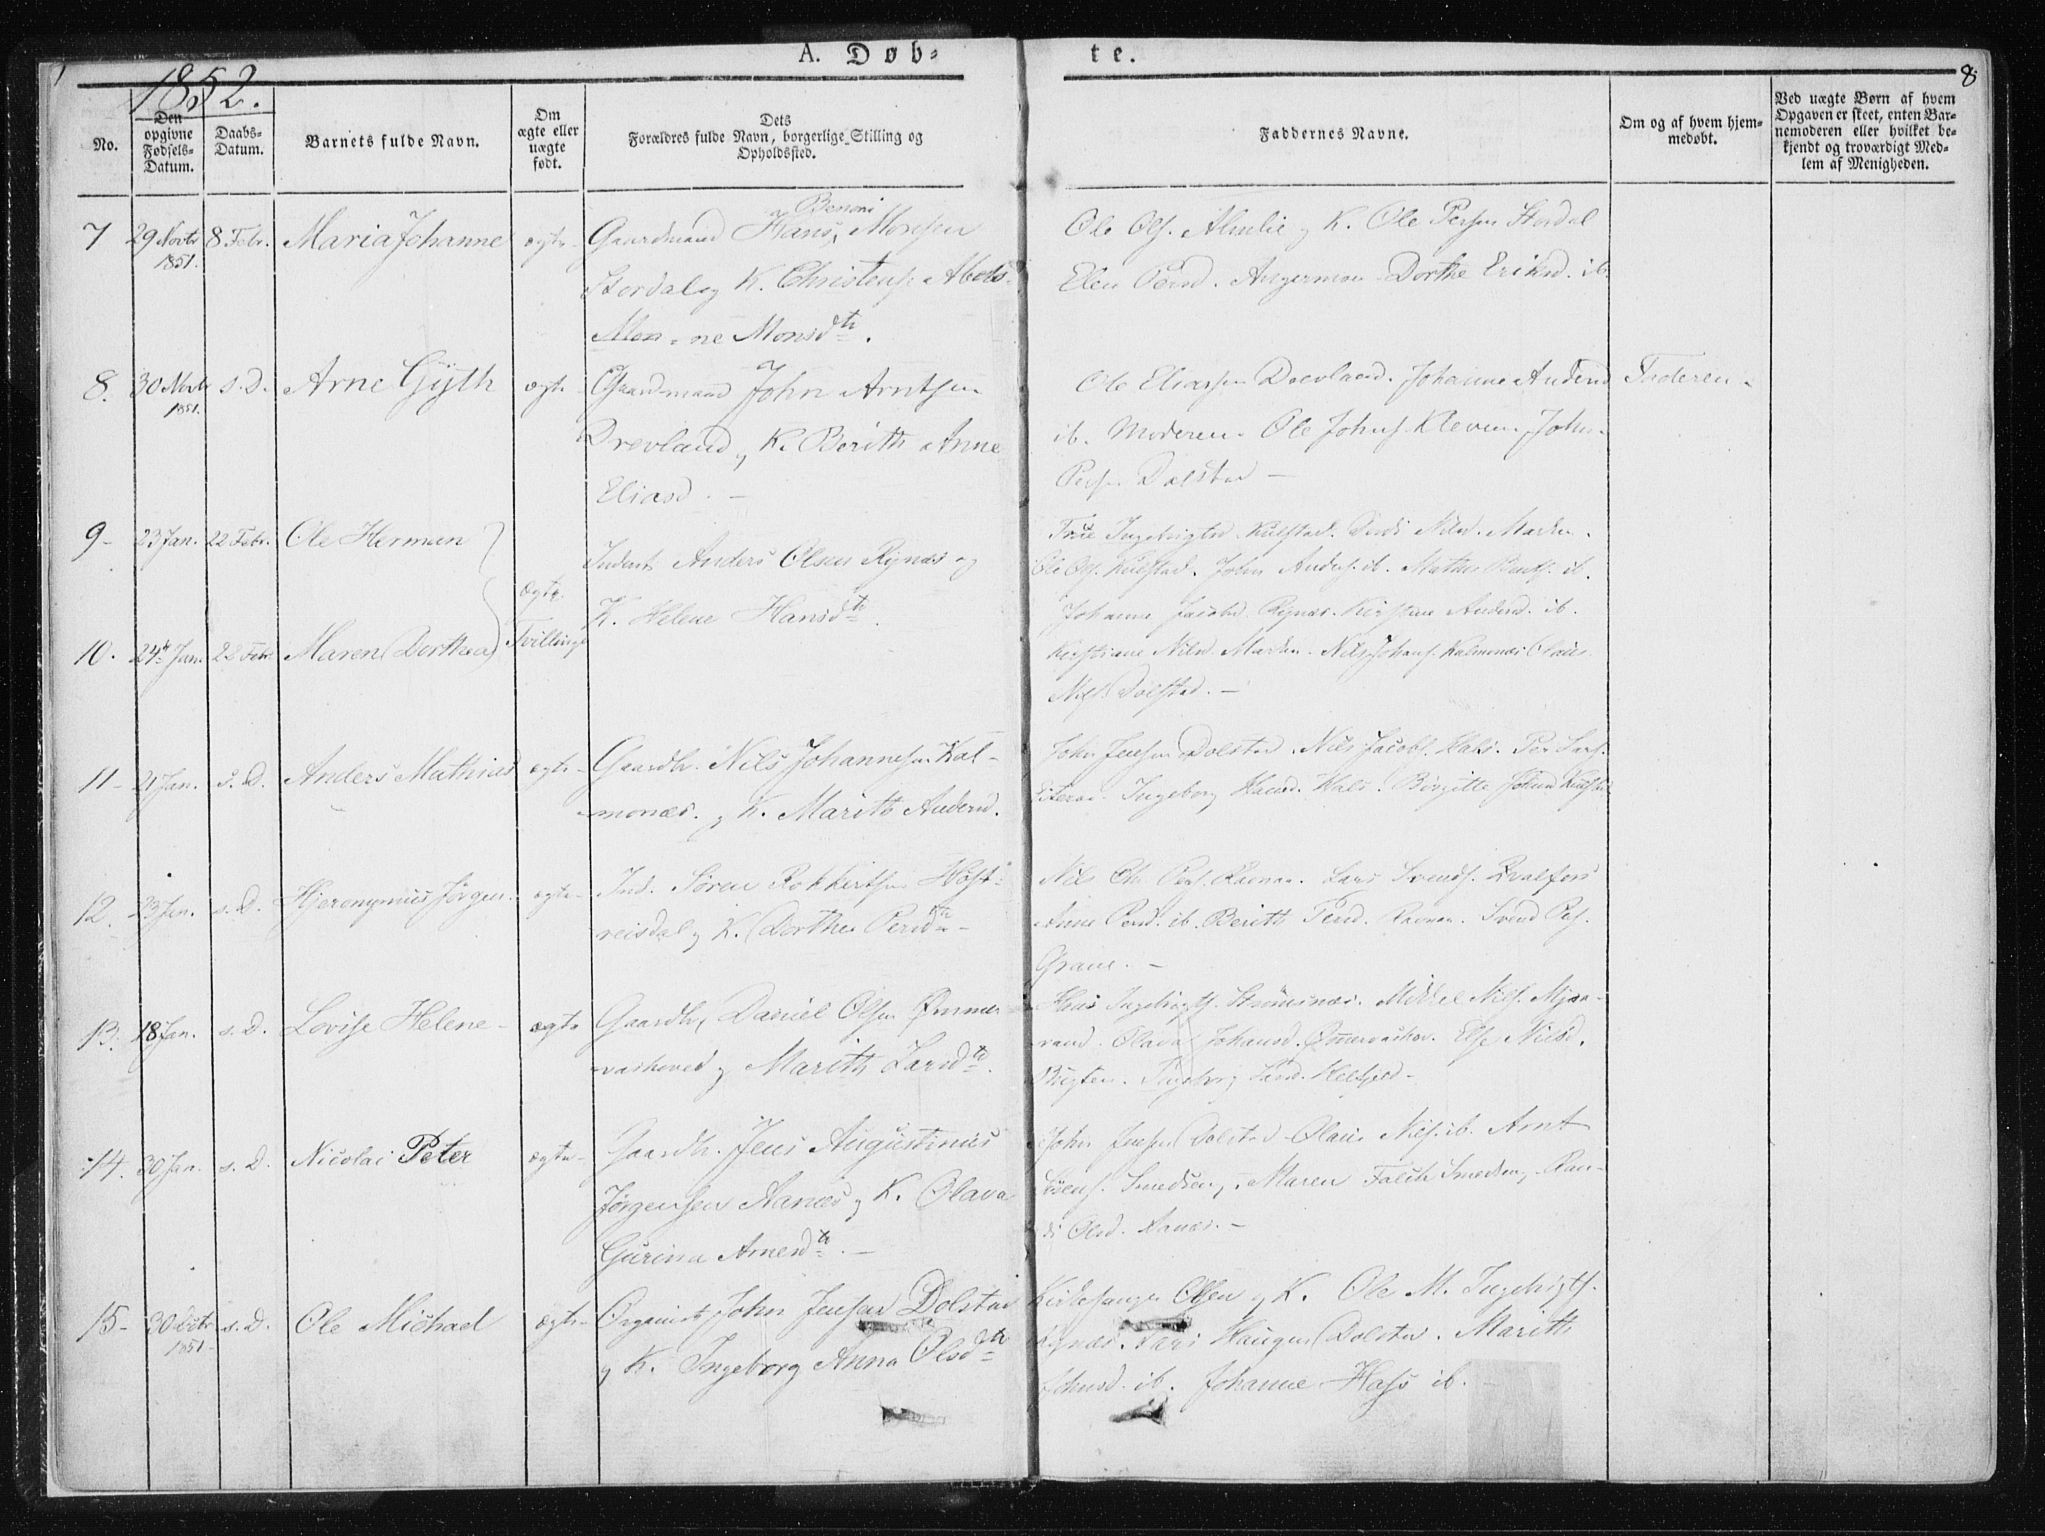 A. Døb=
te.
8
1852.
No.
Den opgivne Fødsels-Datum.
Daabs-Datum.
Barnets fulde Navn.
Om ægte eller uægte født.
Dets Forældres fulde Navn, borgerlige Stilling og Opholdssted.
Faddernes Navne.
Om og af hvem hjemmedøbt.
Ved uægte Børn af hvem Opgaven er skeet, enten Barnemoderen eller hvilket bekjendt og troværdigt Medlem af Menigheden.
7 29 Novbr 1851. 8 Febr. Maria Johanne ægte
Benoni
Gaardmand Hans Monsen
Stordal og K.
Monsdtr.
Ole Ols. Almlie og K. Ole Persen Stordal
Elen Persd. Angermoen Dorthe Eriksd. ib.
8. 30 Novbr 1851. s. D. Arne Gÿth ægte
Gaardmand John Arntsen
Drevland og K. Berith Anne
Eliasd. —
Ole Eliassen Drevland. Johanne Andersd
ib. Moderen. Ole Johns. Kleven, John
Persen Dolstad —
Faderen
9 - 23 Jan. 22 Febr. Ole Herman
Inderst Anders Olsen Rynes og
K. Helene Hansdtr.
ægte Tvillinge
Ingebrigtsd. Kulstad. Nilsd. Marken.
Ole Ols. Kulstad. John Anders. ib. ib.
Johanne Jacobsd. Rynes. Kirstine Andersd. ib.
10. 24de Jan. 22 Febr. Maren Dorthea
Kristiane Nilsd. Marken. Nils Johans. Kalmonæs Olaus
Nils. Dolstad. —
11 - 21 Jan. s. D. Anders Mathias ægte
Gaardbr. Nils Johannesen Kal-
monæs. og K. Marith Andersd.
John Jensen Dolstad. Nils Jacobs. Hals. Per Lars.
Ingeborg Hansd. Hals. Birgitte Johnsd Kulstad
12. 23 Jan. s. D. Hjeronymus Jørgen. ægte
Ind. Søren Rokkertsen
reisdal og K. Dorthea Persdtr
Nils Chr. Pers. Lars Svends. Kvalfors
Anne Persd. ib. Berith Persd. Svend Pes.
Grane. —
13. 18 Jan. s. D. Lovise Helene ægte
Gaardbr. Daniel Olsen Ømmer
vashoved og Marith Larsdtr.
Hans Ingebrigts. Strømnæs. Mikkel Nils. Mjaa-
vand. Olava Johansd. Ømmervashov. Else Nilsd.
Bugten. Ingeborg Larsd.
14. 30 Jan. s. D. Nicolai Peter ægte
Gaardbr. Jens Augustinus
Jørgensen Aanæs og K. Olava
Gurina Arnesdtr. —
John Jensen Dolstad Olaus Nils. ib. Arnt
Smedseng, Maren Falch Smedseng. Ran-
di Olsd. Aanæs. —
15 - 30 1851. s. D. Ole Michael ægte
Organist John Jensen Dolstad
og K. Ingeborg Anna Olsdtr
Kirkesanger Olsen og K. Ole M. Ingebrigts.
Rynæs. Haugen Dolstad. Marith
Johnsd. ib. Johanne Hass ib.